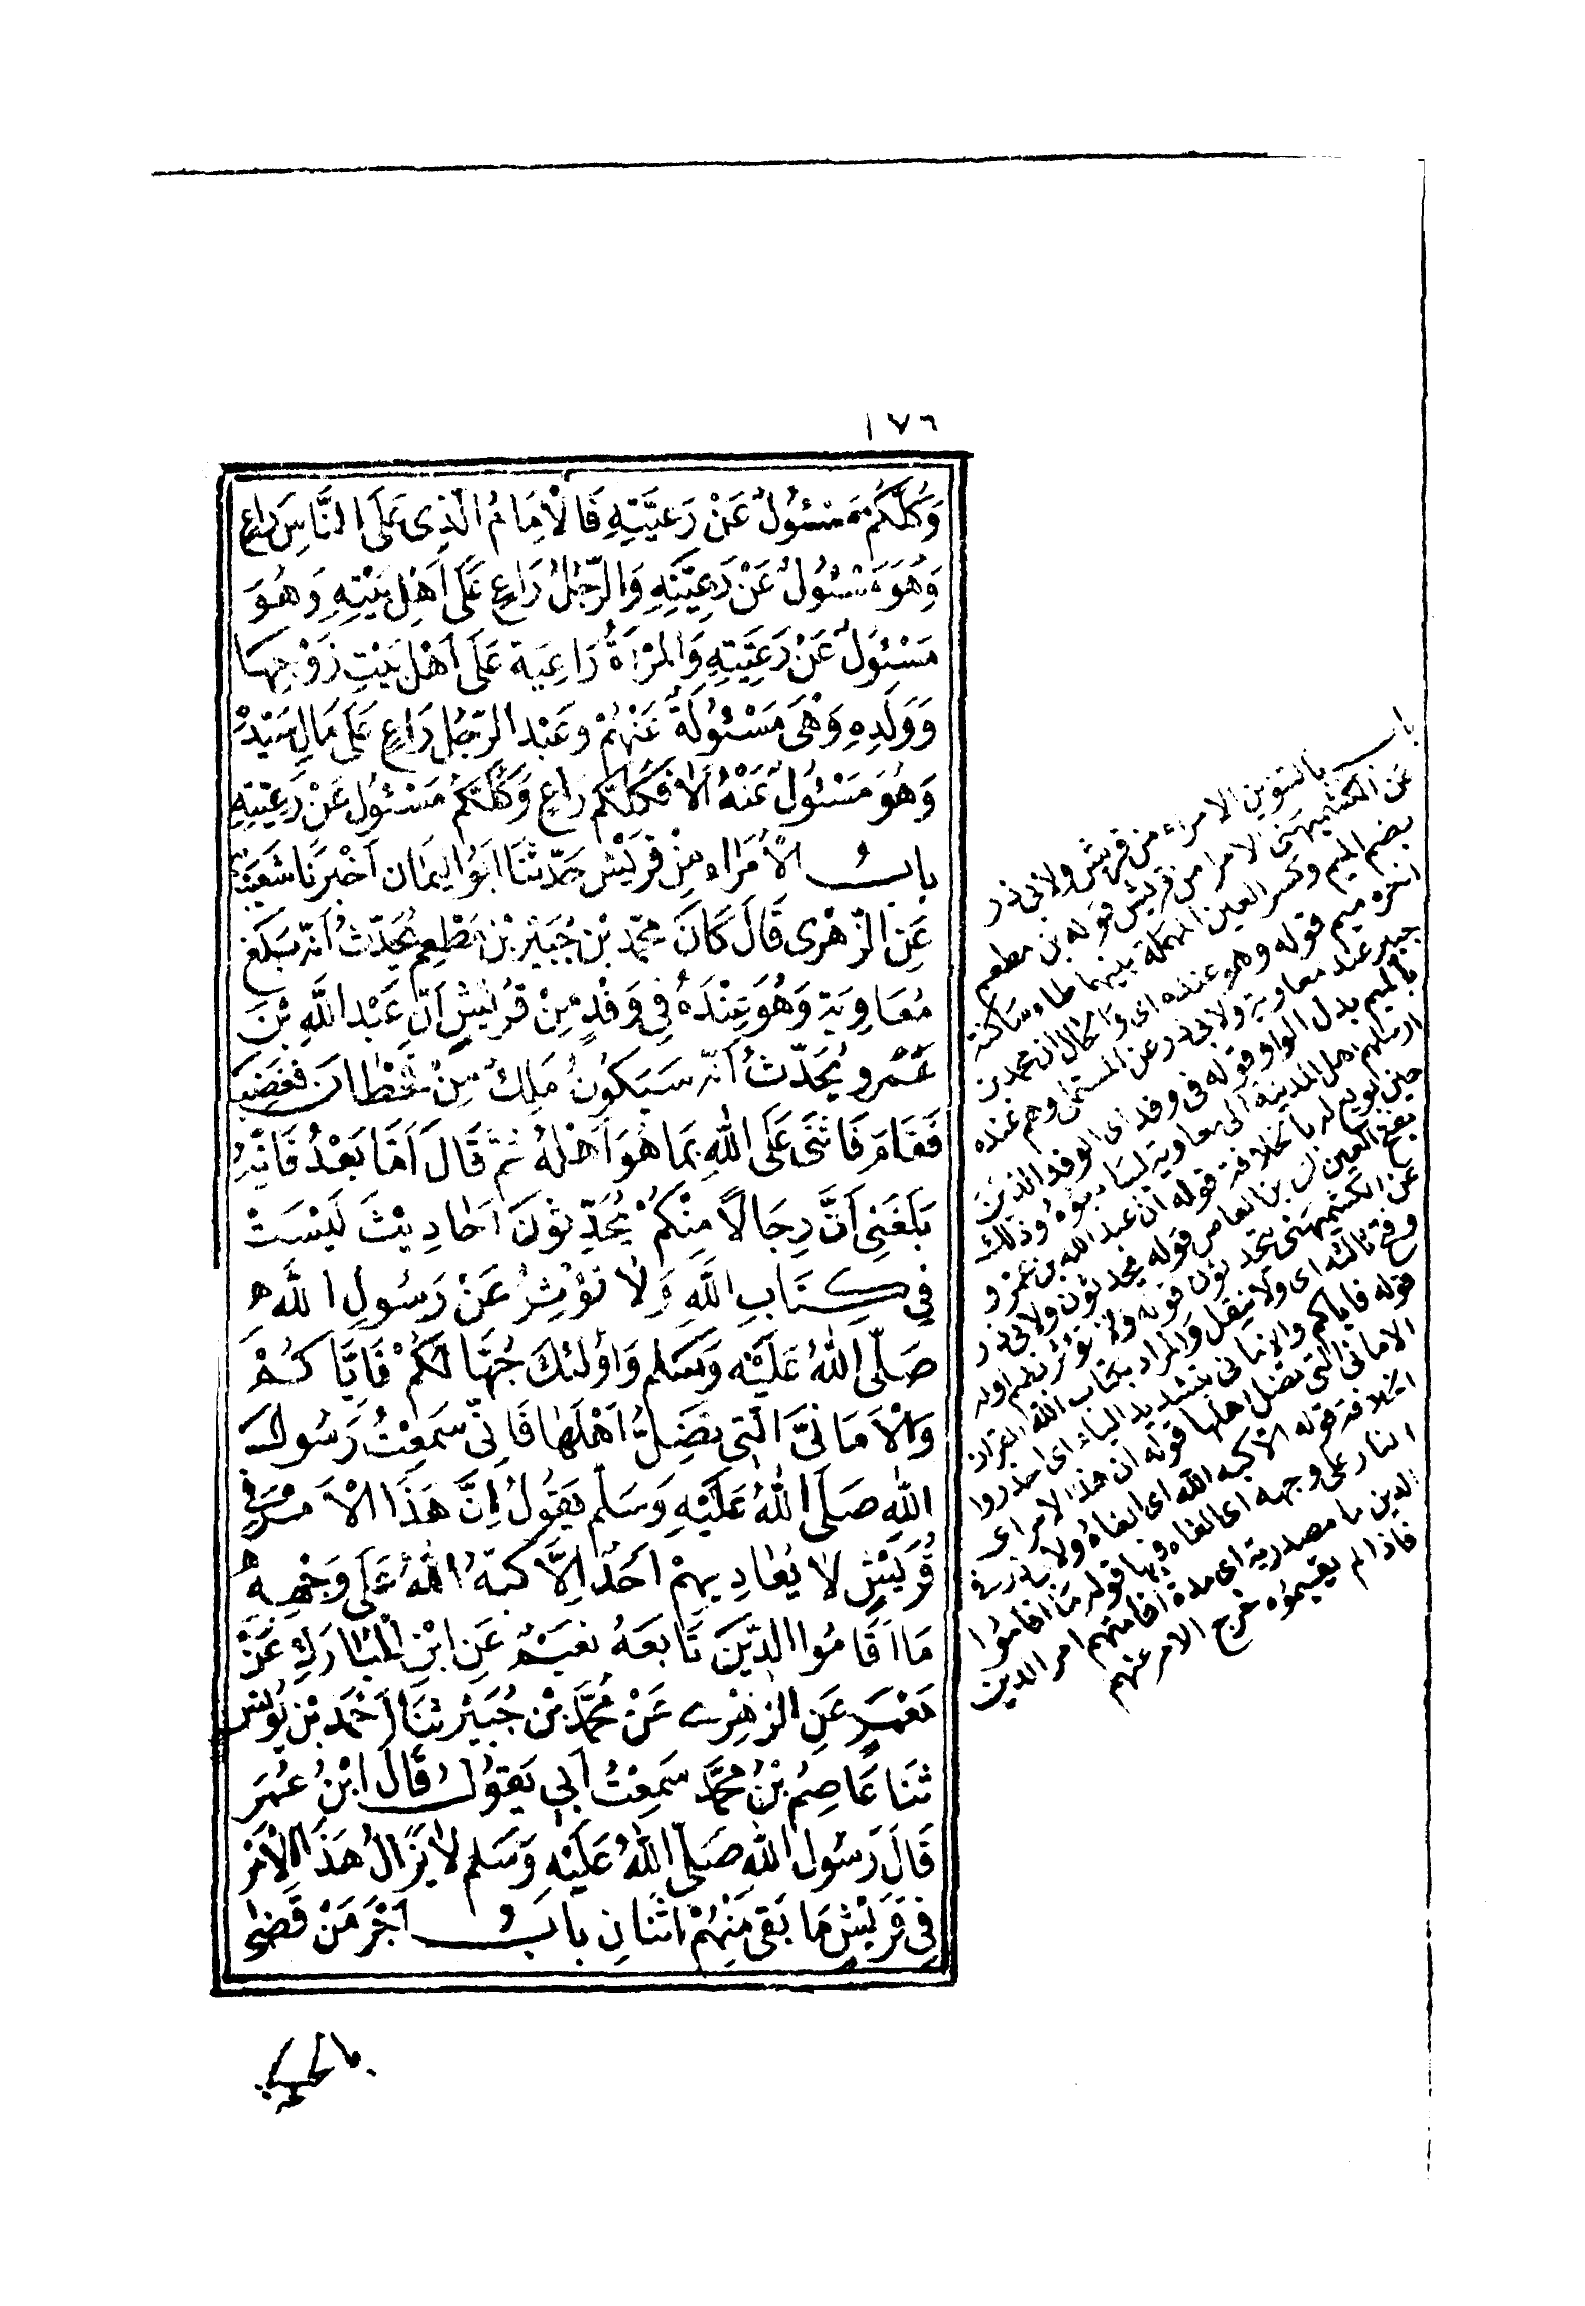 ١٧٦
وَكُلُّكُم مَسْئُولٌ عَنْ رَعِيَّتِهِ فَالْاِمَامُ الَّذِى عَلَى النَّاسِ رَاعٍ
وَهُوَ مَسْئُولٌ عَنْ رَعِيَّتِهِ وَالرَّجُلُ رَاعٍ عَلَى اَهْلِ بَيْتِهِ وَهُوَ
مَسْئُولٌ عَنْ رَعِيَّتِهِ وَالمَرْاَةُ رَاعِيَة عَلَى اَهْلِ بَيْتِ زَوْجِهَا
وَوَلَدِهِ وَهْىَ مَسْئُولَةٌ عَنْهُمْ وعَبْد الرَّجُل رَاعٍ عَلَى مَالِ سَيِّدِهِ
وَهُوَ مَسْئُولٌ عَنْهُ اَلَا فَكُلُّكُم رَاعٍ وَكُلُّكُمْ مَسْئُول عَنْ رَعِيَّتِهِ
بابُ الْأُمَرَاءِ مِنْ قُرَيْش حَدَّثنَا اَبُو اليَمَان اَخْبَرَنَا شعَيْبٌ
عَنِ الزُّهْرِى قَالَ كَانَ مُحَمَّد بْن جُبَيْرِ بْن مُطْعِمٍ يُحَدِّثُ اَنَّه بَلَغَ
مُعَاوِيَة وَهُوَ عِنْدَهُ فِى وَفْدٍ مِنْ قُرَيْشٍ اَنَّ عَبْدَ اللَّهِ بْنَ
عَمْرو يُحَدِّثُ اَنَّه سَيَكُونُ مَلِكٌ مِنْ قَحْطَان فَغَضِبَ
فَقَامَ فَاثْنَى عَلَى اللهِ بِمَا هُوَ اَهْلُهُ ثُمَّ قَالَ اَمَّا بَعْدُ فَاِنَّهُ
بَلَغَنِى اَنَّ رِجَالًا مِنْكُمْ يُحَدِّثُونَ اَحَادِيْثَ لَيْسَتْ
فِى كِتَابِ اللَّهِ وَلَا تُؤْثَرُ عَنْ رَسُولِ اللَّهِ
صَلَّى اللهُ عَلَيْه وَسَلم وَاوُلئك جُهَّالُكُمْ فَاِيَّاكُمْ
وَالْاَمَانِىَّ الَّتِى تُضِلُّ اَهْلَهَا فَاِنِّى سَمِعْتُ رَسُول
اللهِ صَلَى اللهُ عَلَيْهِ وَسَلَّم يَقُولُ اِنَّ هَذَا الْاَمْرَ فِى
قُرَيْشٍ لَا يُعَادِيهِمْ اَحَدٌ اِلَّا كَبَّهُ اللهُ عَلَى وَجْهِهِ
مَا اَقَامُوا الدِّيْنَ تَابَعَهُ نعَيْم عَنِ ابْنِ الْمُبَارَكِ عَنْ
مَعْمَرٍ عَنِ الزهْرِى عَنْ مُحَمَّد بْن جُبَيْر ثنَا اَحْمَد بْن يُونُس
ثَنَا عَاصِمُ بْنُ مُحَمَّد سَمِعْتُ اَبى يَقوُل قَالَ ابْنُ عُمَرَ
قَالَ رَسُول اللهِ صَلَّى اللهُ عَلَيْهِ وَسَلم لَا يَزَالُ هَذَا الْاَمْر
فِى قُرَيْشٍ مَا بَقِى مِنْهُمْ اثْنَانِ بابُ اَجْر مَنْ قَضَى
باب بالتنوين الامراء من قريش ولابى ذر
عن الكشميهنى الامرا من قريش قوله بن مطعم
بضم الميم وكسر العين المهملة بينهما طاء ساكنة
اخره ميم قوله وهو عنده اى والحال ان محمد بن
جبير عند معاوية ولابى ذر عن المستملى وهم عنده
بالميم بدل الواو قوله فى وفد اى الوفد الذين
ارسلهم اهل المدينة الى معاوية ليبايعوه وذلك
حين بويع له بالخلافة قوله ان عبد الله بن عمرو
بفتح العين بن العاص قوله يحدثون ولابى ذر
عن الكشميهنى يتحدثون قوله ولا تؤثر بضم اوله
وفتح ثالثه اى ولا تنقل والمراد بكتاب الله القران
قوله فاياكم والامانى بتشديد الياء اى احذروا
الامانى التى تضل اهلها قوله ان هذا الامر اى
الخلافة قوله الا كبه الله اى القاه ولابى ذر فى
النار على وجهه اى القاه فيها قوله ما اقاموا
الدين ما مصدرية اى مدة اقامتهم امر الدين
فاذا لم يقيموه خرج الامر عنهم